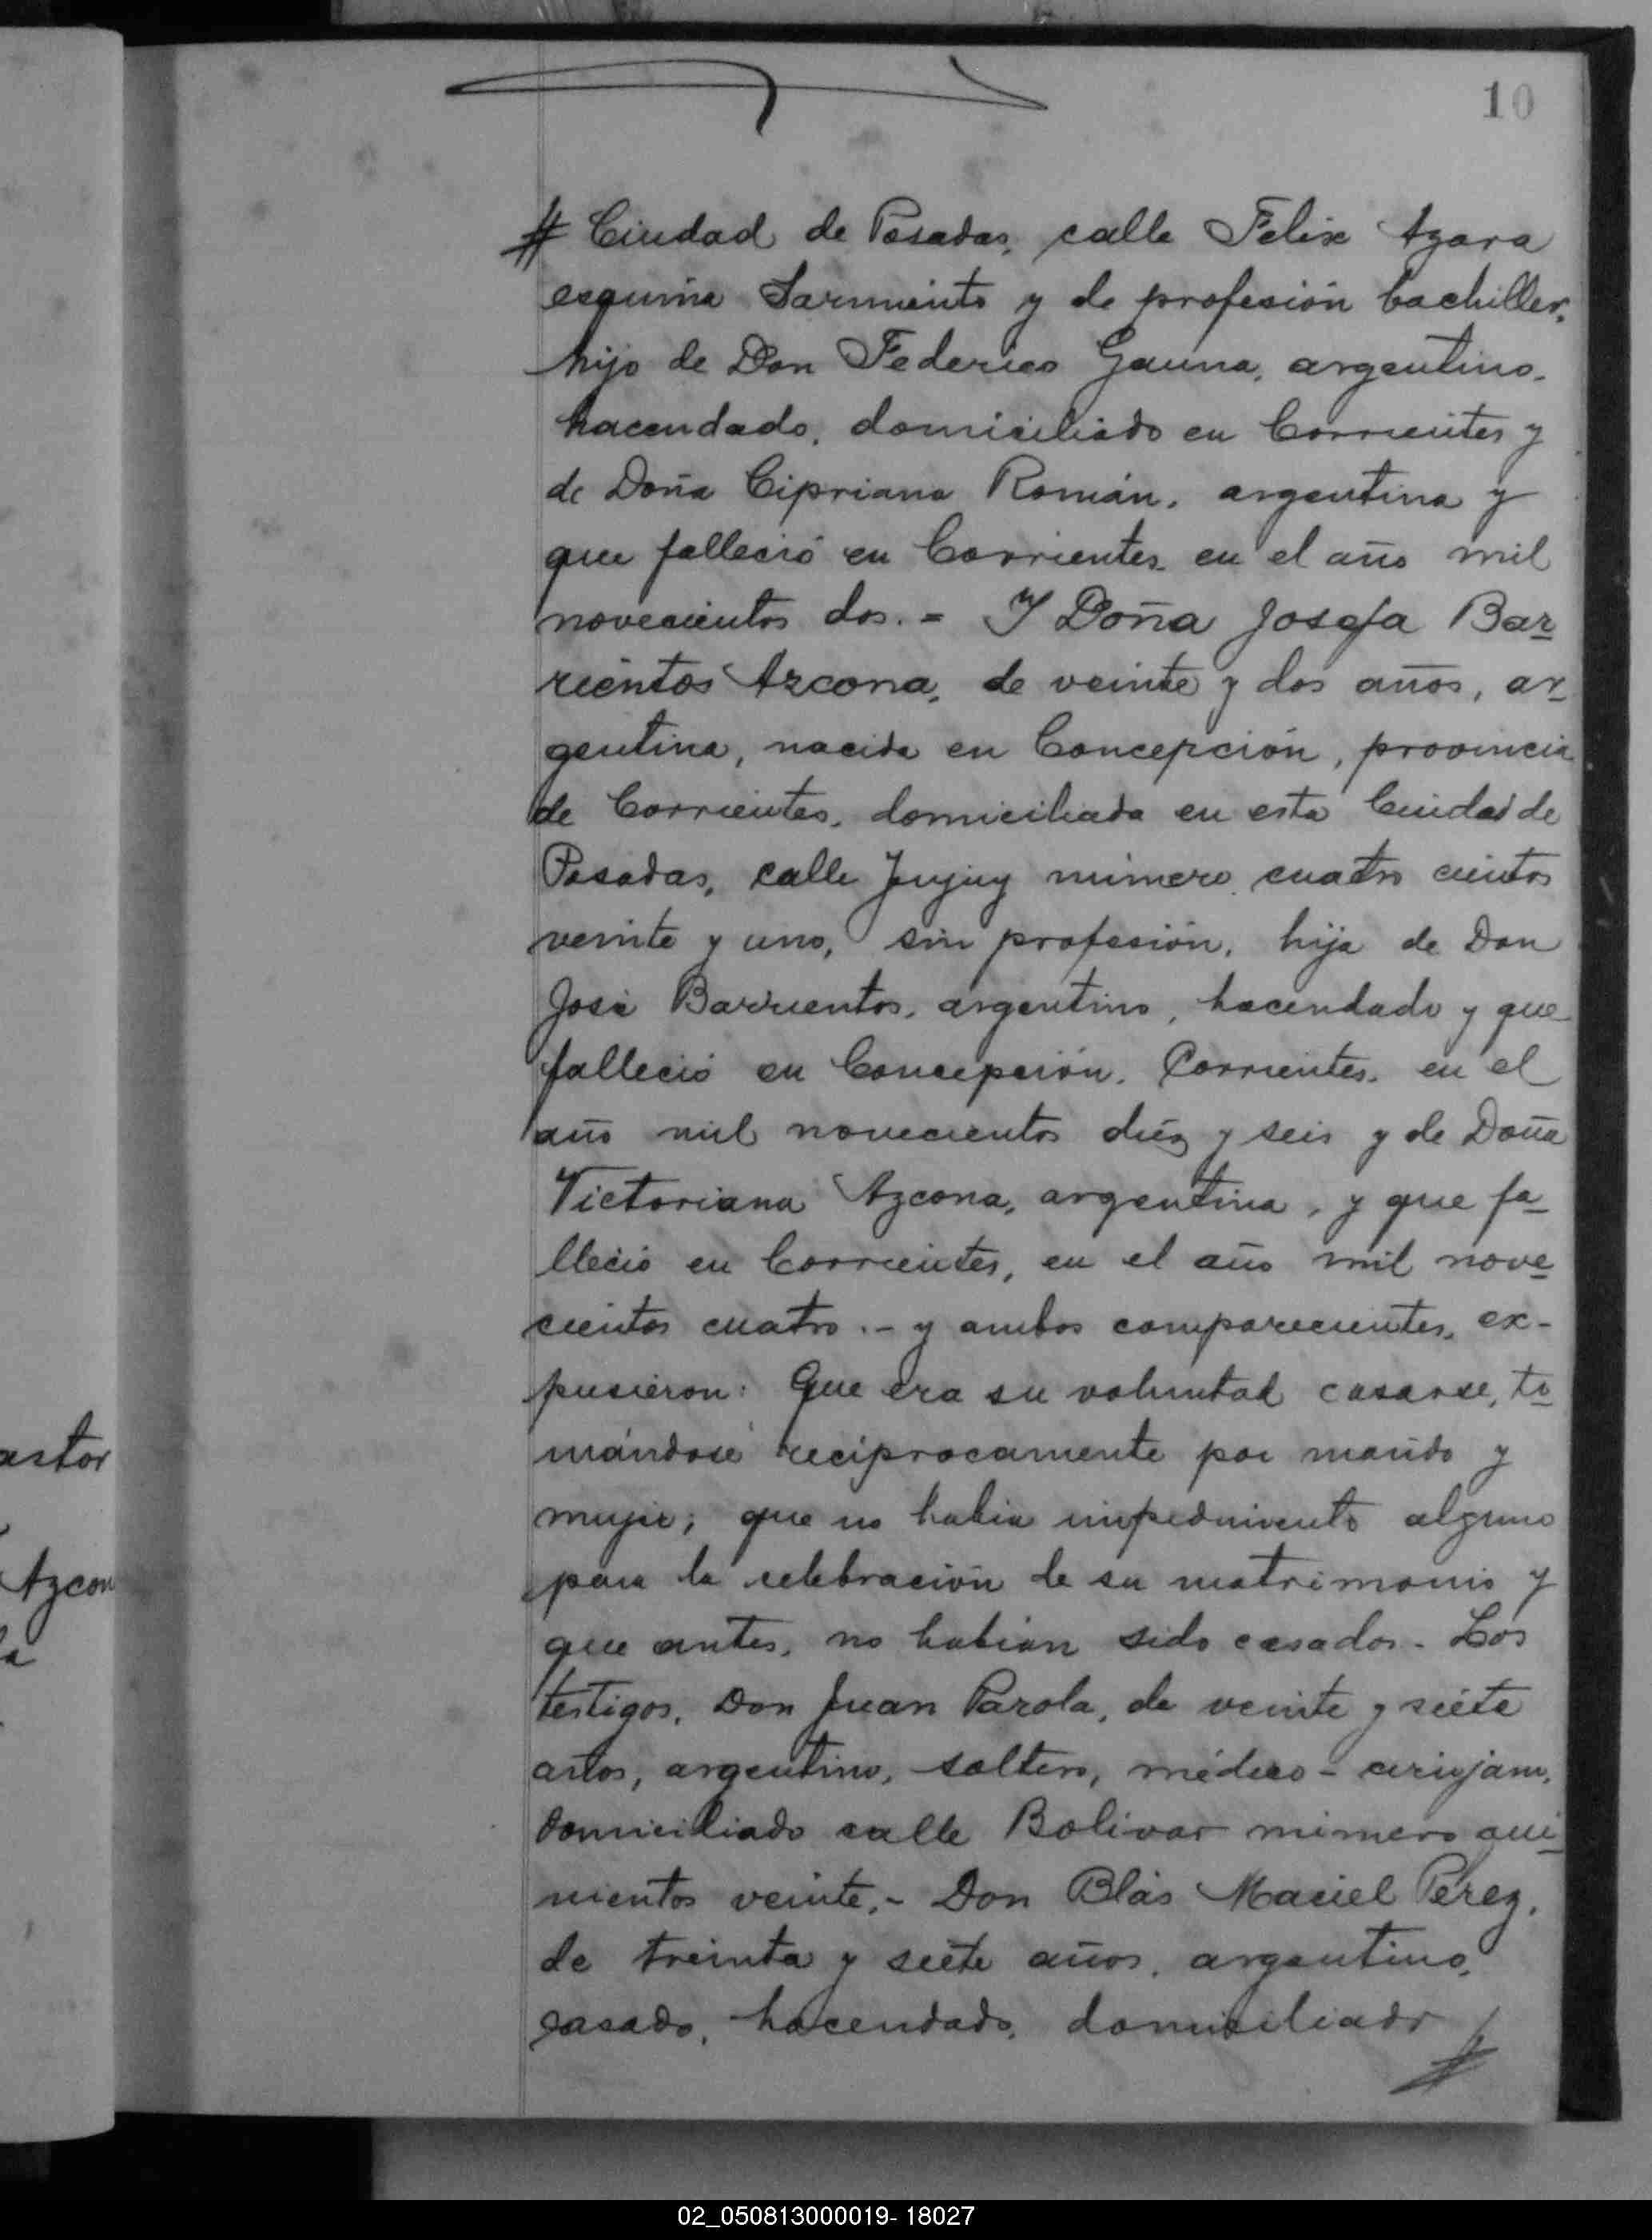 10
# Ciudad de Posadas, calle Felix Azara
esquina Sarmiento y de profesión bachiller,
hijo de Don Federico Gauna, argentino,
hacendado, domiciliado en Corrientes y
de Doña Cipriana Román, argentina y
que falleció en Corrientes en el año mil
novecientos dos. = Y Doña Josefa Bar-
rientos Azcona, de veinte y dos años, ar-
gentina, nacida en Concepción, provincia
de Corrientes, domiciliada en esta Ciudad de
Posadas, calle Jujuy número cuatro cientos
veinte y uno, sin profesión, hija de Don
José Barrientos, argentino, hacendado y que
falleció en Concepción, Corrientes, en el
año mil novecientos diéz y seis y de Doña
Victoriana Azcona, argentina, y que fa-
lleció en Corrientes, en el año mil nove-
cientos cuatro.- y ambos comparecientes, ex-
pusieron: Que era su voluntad casarse, to-
mándose reciprocamente por marido y
mujer; que no habia impedimiento alguno
para la celebración de su matrimonio y
que antes, no habian sido casados. - Los
testigos, Don Juan Parola, de veinte y siete
años, argentino, soltero, médico - cirujano,
domiciliado calle Bolivar número qui-
nientos veinte,- Don Blás Maciel Perez,
de treinta y siete años, argentino,
casado, hacendado, domiciliado #
astor
Azcon
a
02_050813000019- 18027